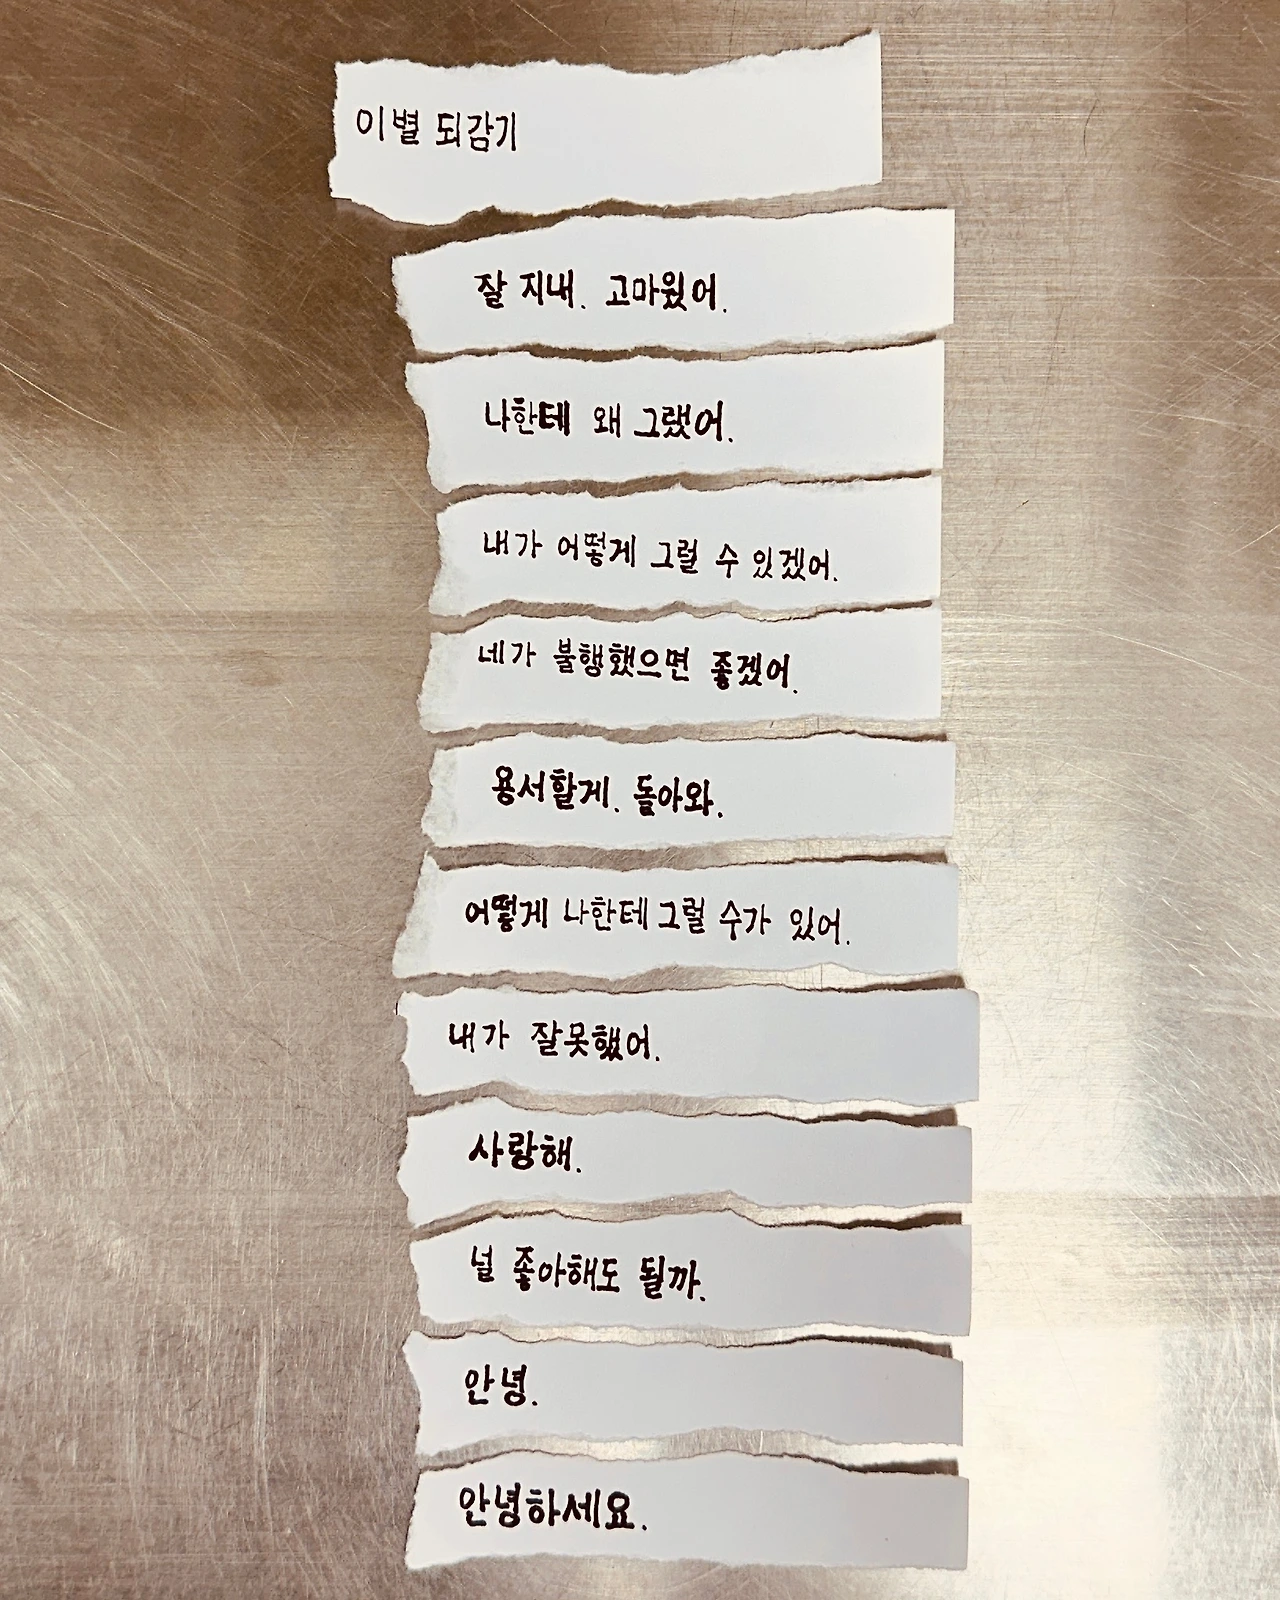 이별 되감기
잘 지내. 고마웠어.
나한테 왜 그랬어.
내가 어떻게 그럴 수 있겠어.
네가 불행했으면 좋겠어.
용서할게. 돌아와.
어떻게 나한테 그럴 수가 있어.
내가 잘못했어.
사랑해.
널 좋아해도 될까.
안녕.
안녕하세요.